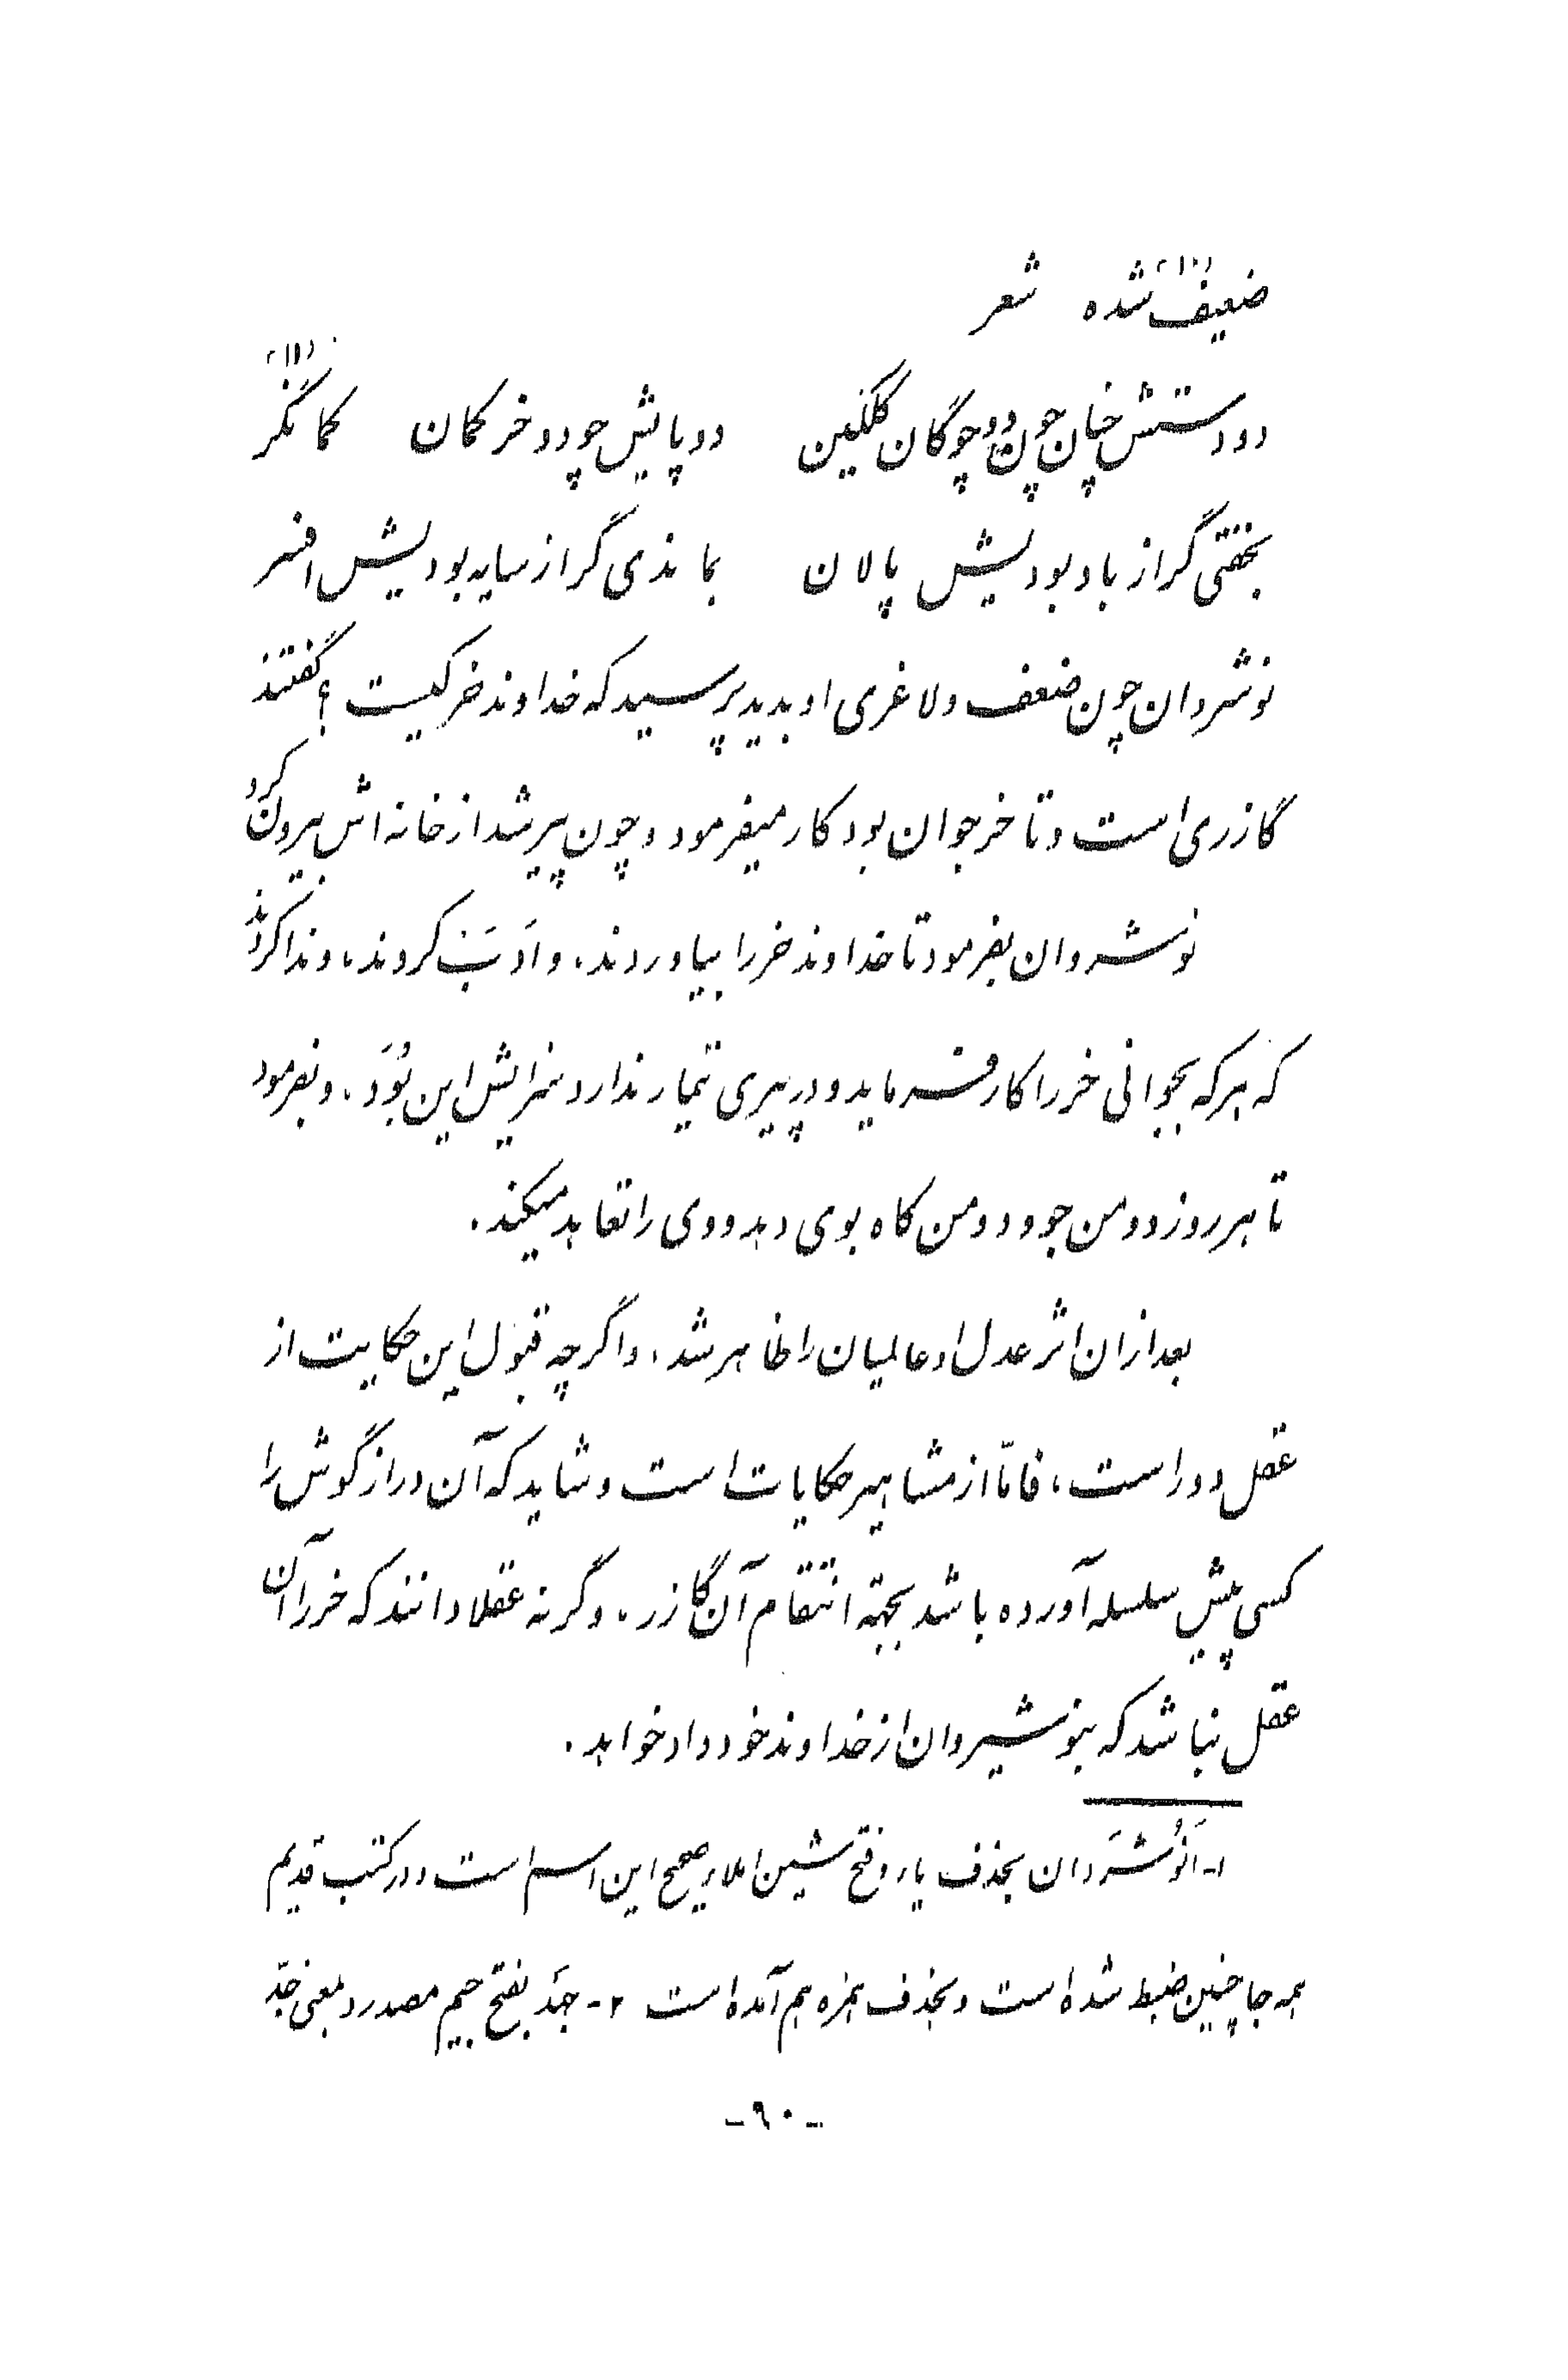 ضعیف (۱۰) شده شعر
دو دستش خپان چون دو چوگان گلگین دو پایش چو دو خر کمان کمانگر (۱۱)
بخفتی گر از باد بودیش پالان بماندی گر از سایه بودیش افسر
نوشروان چون ضعف و لاغری او بدید پرسید که خداوند خر کیست ؟ گفتند
گازری است و تا خر جوان بود کار میفرمود و چون پیر شد از خانه اش بیرون کرد
نوشروان بفرمود تا خداوند خر را بیاوردند، و ادَبَش کردند، و ندا کردند
که هر که بجوانی خر را کار فرماید و در پیری تیمار ندارد سزایش این بُوَد، و بفرمود
تا هر روز دو من جو و دو من کاه بوی دهد و وی را تعاهد میکند.
بعد از ان اثر عدل او عالمیان را ظاهر شد، و اگرچه قبول این حکایت از
عقل دور است، فامّا از مشاهیر حکایات است و شاید که آن دراز گوش را
کسی پیش سلسله آورده باشد بجهة انتقام آن گازر، و گرنه عقلا دانند که خر را آن
عقل نباشد که بنوشیروان از خداوند خود داد خواهد.
۱- اَنُوشَروان بحذف یاء و فتح شین املاء صحیح این اسم است و در کتب قدیم
همه جا چنین ضبط شده است و بحذف همزه هم آمده است ۲- جَدّ بفتح جیم مصدر و بمعنی جدّ
-۹۰-